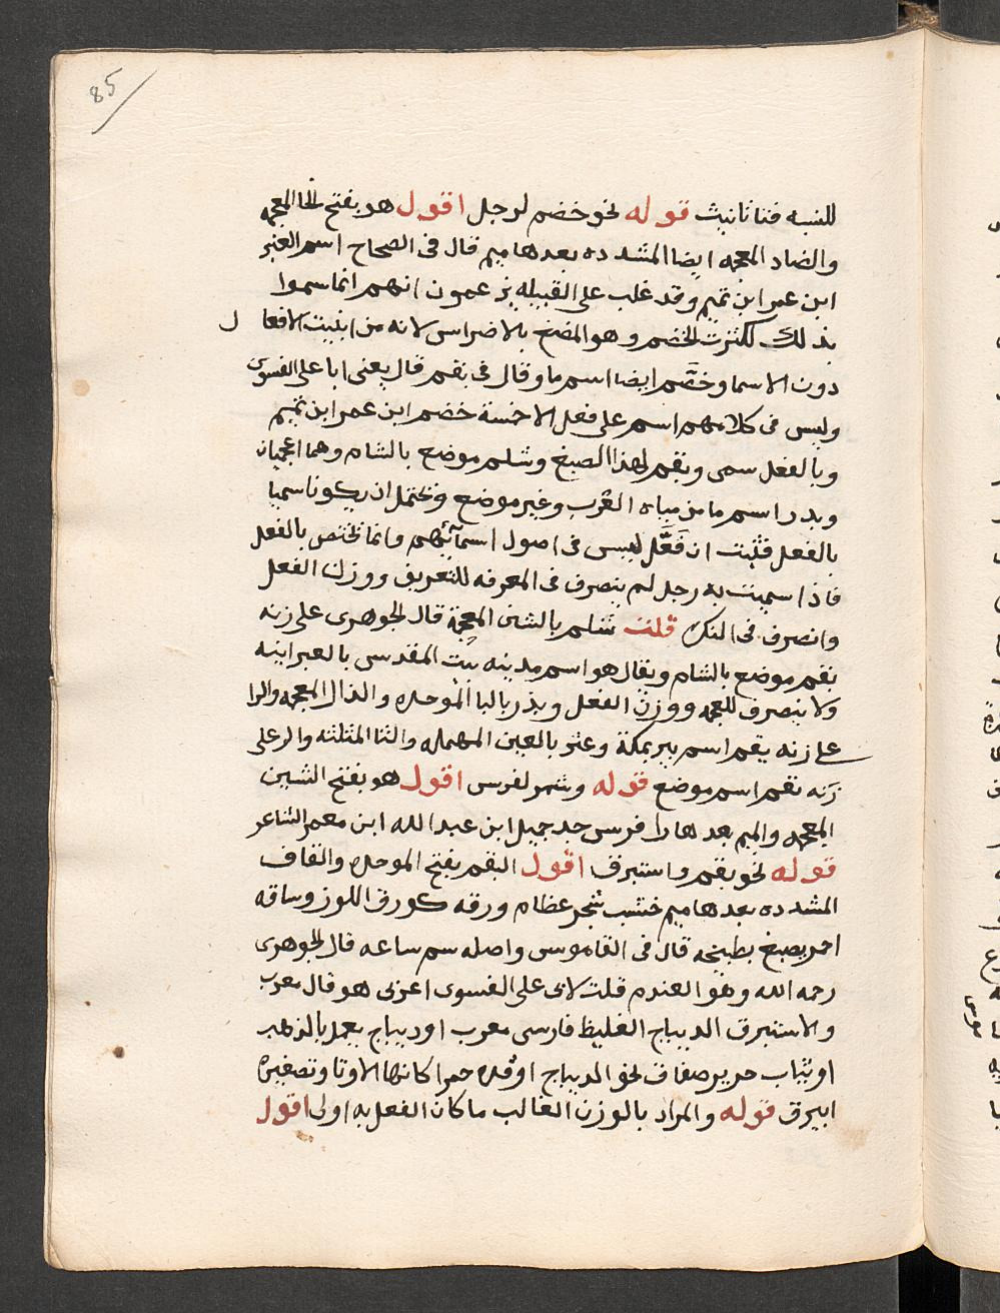 85
للنسبه فتاتانيث قوله نحو خضم لرجل اقول هو بفتح الخا المعجمه
والضاد المعجمه ايضا المشدده بعدها ميم قال فى الصحاح اسم العنبر
ابن عمر ابن تميم وقد غلب على القبيله يزعمون انهم انما سموا
بذلك لكثرت الخضم وهو المضغ بالاضراس لانه من ابنيت الافعال
دون الاسما وخضم ايضا اسم ما وقال فى بقم قال يعنى ابا على الفسوى
وليس فى كلامهم اسم على فعل الا خمسة خضم ابن عمر ابن تميم
وبالفعل سمى وبقم لهذا الصبغ وشلم موضع بالشام وهما اعجميان
وبدر اسم ما من مياه العرب وعثر موضع ويحتمل ان يكونا سميا
بالفعل فثبت ان فَعَّل ليس فى اصول اسمآئهم وانما تختص بالفعل
فاذا سميت به رجل لم ينصرف فى المعرفه للتعريف ووزن الفعل
وانصرف فى النكر قلت شلم بالشين المعجمة قال الجوهرى على زنه
بقم موضع بالشام ويقال هو اسم مدينه بيت المقدس بالعبرانيه
ولا ينصرف للعجمه ووزن الفعل وبذر بالبا الموحده والذال المعجمه والرا
على زنه بقم اسم بير بمكة وعثر بالعين المهمله والثا المثلثه والر على
زنه بقم اسم موضع قوله وشمر لفرس اقول هو بفتح الشين
المعجمه والميم بعدها را فرس جد جميل ابن عبد الله ابن معمر الشاعر
قوله نحو بقم واستبرق اقول البقم بفتح الموحده والقاف
المشدده بعدها ميم خشب شجر عظام ورقه كورق اللوز وساقه
احمر يصبغ بطبيخه قال فى القاموس واصله سم ساعه قال الجوهرى
رحمه الله وهو العندم قلت لابى على الفسوى اعربى هو قال معرب
والاستبرق الديباج الغليظ فارسى معرب او ديباج يعمل بالذهب
او ثياب حرير صفاق نحو الديباج او قده حمرا كانها الاوتا وتصغيره
ابيرق قوله والمراد بالوزن الغالب ما كان الفعل به اولى اقول